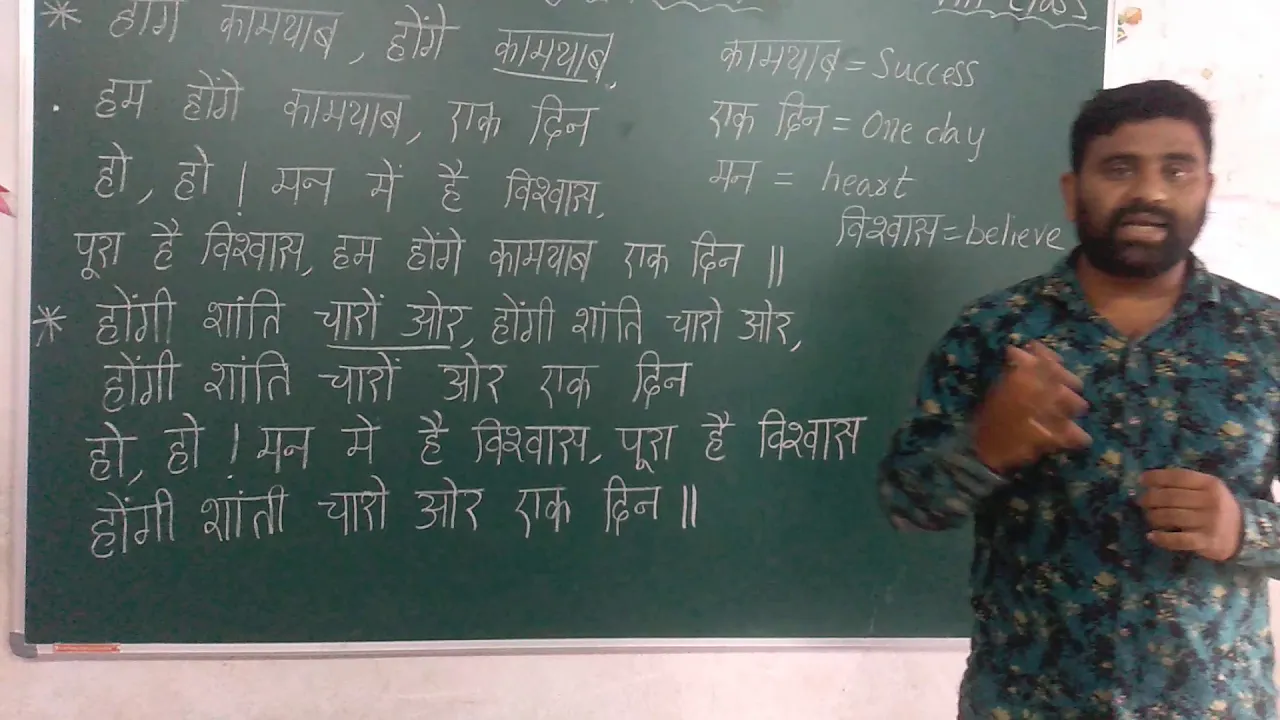 * होंगे कामयाब, होंगे कामयाब,
हम होंगे कामयाब, एक दिन
हो, हो ! मन में है विश्वास,
पूरा है विश्वास, हम होंगे कामयाब एक दिन ||
* होंगी शांति चारों ओर, होंगी शांति चारो ओर,
होंगी शांति चारों ओर एक दिन
हो, हो ! मन मे है विश्वास, पूरा है विश्वास
होंगी शांती चारो ओर एक दिन ||
class
कामयाब = Success
एक दिन = One day
मन = heart
विश्वास = believe